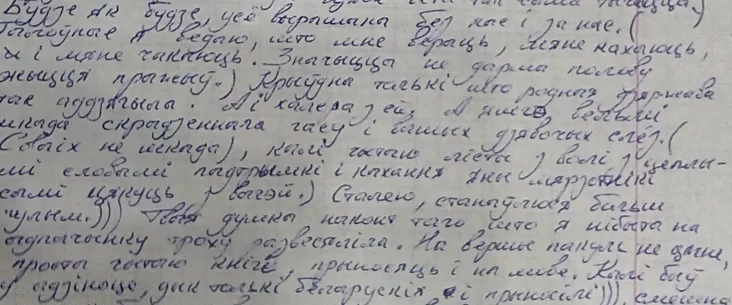 Будзе як будзе, усё вырашана без нас і за нас.(
Галоўнае я ведаю, што мне вераць, мяне кахаюць,
і мяне чакаюць. Значыцца не дарма палову
жыцця пражыў.) Крыўдна толькі што родная дзяржава
так аддзячыла. А і халера з ёй, а вельмі
шкада скрадзеннага часу і вашых дзявочых слёз.(
(Сваіх не шкада), калі чытаю лісты з волі з цеплы-
мі словамі падтрымкі і кахання яны мярзотнікі
самі цякуць з вачэй.) Старею, станаўлюся больш
чулым.))) Твая думка наконт таго што я нібыта на
адпачынку троху развесяліла. На вершы пакуль не цягне,
проста чытаю кнігі, прыносяць і на мове. Калі быў
у адзіночцы, дык толькі беларускія і прыносілі)))